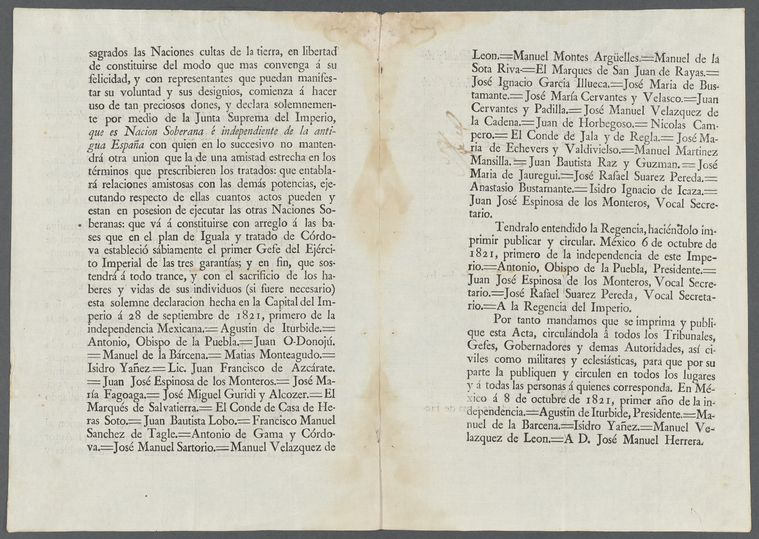 sagrados las Naciones cultas de la tierra, en libertad
de constituirse del modo que mas convenga á su
felicidad, y con representantes que puedan manifes-
tar su voluntad y sus designios, comienza á hacer
uso de tan preciosos dones, y declara solemnemen-
te por medio de la Junta Suprema del Imperio,
que es Nacion Soberana é independiente de la anti-
gua España con quien en lo succesivo no manten-
drá otra union que la de una amistad estrecha en los
términos que prescribieren los tratados: que entabla-
rá relaciones amistosas con las demás potencias, eje-
cutando respecto de ellas cuantos actos pueden y
estan en posesion de ejecutar las otras Naciones So-
beranas: que vá á constituirse con arreglo á las ba-
ses que en el plan de Iguala y tratado de Córdo-
va estableció sábiamente el primer Gefe del Ejérci-
to Imperial de las tres garantías; y en fin, que sos-
tendrá á todo trance, y con el sacrificio de los ha-
beres y vidas de sus individuos (si fuere necesario)
esta solemne declaracion hecha en la Capital del Im-
perio á 28 de septiembre de 1821, primero de la
independencia Mexicana.= Agustin de Iturbide.=
Antonio, Obispo de la Puebla.=Juan O-Donojú.
=Manuel de la Bárcena.= Matias Monteagudo.=
Isidro Yañez.= Lic. Juan Francisco de Azcárate.
=Juan José Espinosa de los Monteros.= José Ma-
ría Fagoaga.= José Miguel Guridi y Alcozer.= El
Marqués de Salvatierra.= El Conde de Casa de He-
ras Soto.= Juan Bautista Lobo.= Francisco Manuel
Sanchez de Tagle.=Antonio de Gama y Córdo-
va.=José Manuel Sartorio.=Manuel Velazquez de
Leon.=Manuel Montes Argüelles.=Manuel de la
Sota Riva=El Marques de San Juan de Rayas.=
José Ignacio García Illueca.=José Maria de Bus-
tamante.= José María Cervantes y Velasco.=Juan
Cervantes y Padilla.= José Manuel Velazquez de
la Cadena.=Juan de Horbegoso.= Nicolas Cam-
pero.= El Conde de Jala y de Regla.= José Ma-
ría de Echevers y Valdivielso.=Manuel Martinez
Mansilla.= Juan Bautista Raz y Guzman.= José
Maria de Jauregui.=José Rafael Suarez Pereda.=
Anastasio Bustamante.= Isidro Ignacio de Icaza.=
Juan José Espinosa de los Monteros, Vocal Secre-
tario.
Tendralo entendido la Regencia, haciéndolo im-
primir publicar y circular. México 6 de octubre de
1821, primero de la independencia de este Impe-
rio.=Antonio, Obispo de la Puebla, Presidente.=
Juan José Espinosa de los Monteros, Vocal Secre-
tario.=José Rafael Suarez Pereda, Vocal Secreta-
rio.=A la Regencia del Imperio.
Por tanto mandamos que se imprima y publi-
que esta Acta, circulándola á todos los Tribunales,
Gefes, Gobernadores y demas Autoridades, así ci-
viles como militares y eclesiásticas, para que por su
parte la publiquen y circulen en todos los lugares
y á todas las personas á quienes corresponda. En Mé-
xico á 8 de octubre de 1821, primer año de la in-
dependencia.=Agustin de Iturbide, Presidente.=Ma-
nuel de la Barcena.=Isidro Yañez.=Manuel Ve-
lazquez de Leon.=A D. José Manuel Herrera.